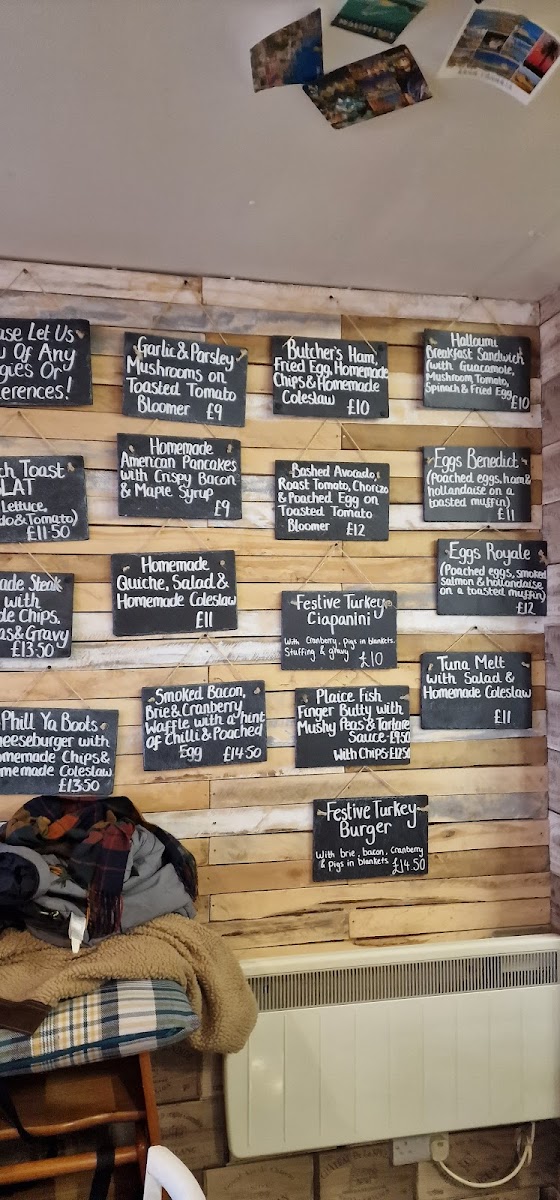 Let Us
Of Any
Or
Garlic & Parsley
Mushrooms on
Toasted Tomato
Bloomer £9
Butcher's Ham,
Fried Egg, Homemade
Chips & Homemade
Coleslaw £10
Halloumi
Breakfast Sandwich
(with Guacamole,
Mushroom, Tomato,
Spinach & Fried Egg £10
Toast
Lettuce,
& Tomato)
£11·50
Homemade
American Pancakes
with Crispy Bacon
& Maple Syrup
£9
Bashed Avocado,
Roast Tomato, Chorizo
& Poached Egg on
Toasted Tomato
Bloomer £12
Eggs Benedict
(Poached eggs, ham &
hollandaise on a
toasted muffin)
£11
Steak
with
Chips.
& Gravy
£13·50
Homemade
Quiche, Salad &
Homemade Coleslaw
£11
Festive Turkey
Ciapanini
With Cranberry, pigs in blankets.
Stuffing & gravy £10
Eggs Royale
(Poached eggs, smoked
salmon & hollandaise
on a toasted muffin)
£12
Phill Ya Boots
with
Chips &
Coleslaw
£13·50
Smoked Bacon,
Brie & Cranberry
Waffle with a hint
of Chilli & Poached
Egg £14·50
Plaice Fish
Finger Butty with
Mushy Peas & Tartare
Sauce-£9.50
With Chips-£12.50
Tuna Melt
with Salad &
Homemade Coleslaw
£11
Festive Turkey
Burger
With brie, bacon, Cranberry
& Pigs in blankets £14.50